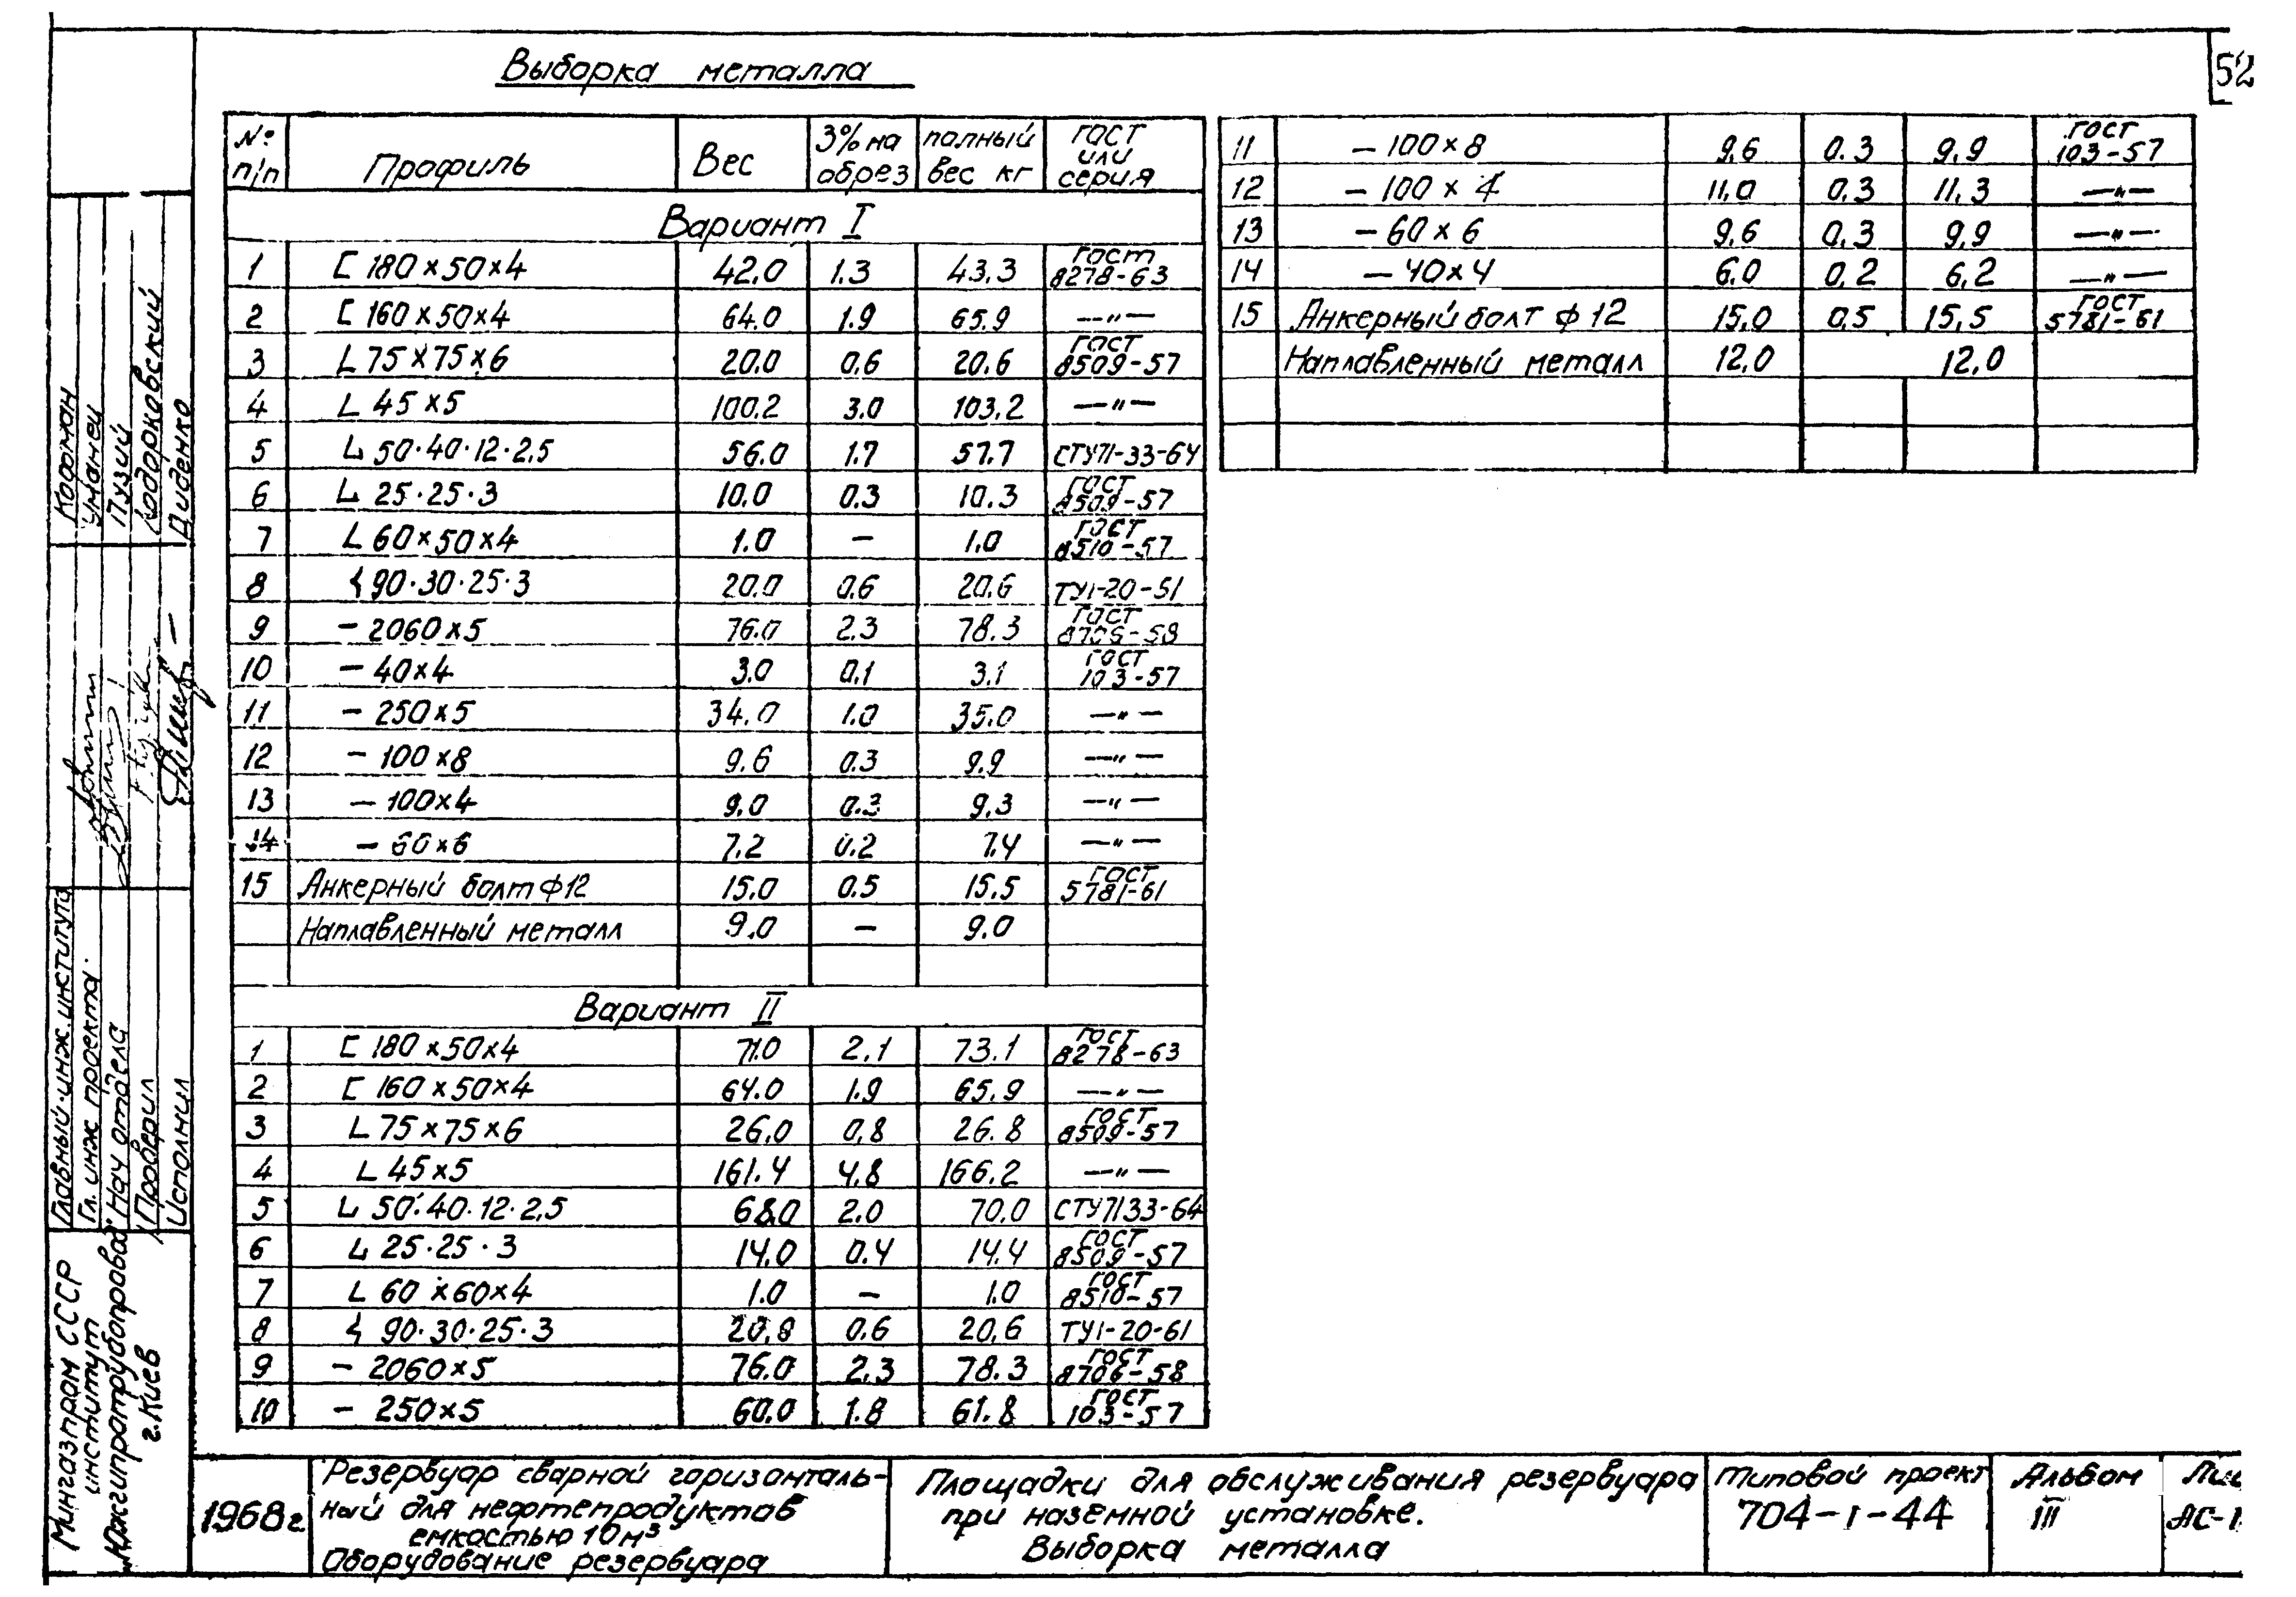 52
Выборка металла
№ п/п Профиль Вес 3% на обрез полный вес кг ГОСТ или серия
Вариант I
1 [ 180×50×4 42.0 1.3 43.3 ГОСТ 8278-63
2 [ 160×50×4 64.0 1.9 65.9 —"—
3 L 75×75×6 20.0 0.6 20.6 ГОСТ 8509-57
4 L 45×5 100.2 3.0 103.2 —"—
5 L 50·40·12·2,5 56.0 1.7 57.7 СТУ71-33-64
6 L 25·25·3 10.0 0.3 10.3 ГОСТ 8509-57
7 L 60×50×4 1.0 — 1.0 ГОСТ 8510-57
8 90·30·25·3 20.0 0.6 20.6 ТУ1-20-51
9 — 2060×5 76.0 2.3 78.3 ГОСТ 8706-58
10 — 40×4 3.0 0.1 3.1 ГОСТ 103-57
11 — 250×5 34.0 1.0 35.0 —"—
12 — 100×8 9.6 0.3 9.9 —"—
13 — 100×4 9.0 0.3 9.3 —"—
14 — 60×6 7.2 0.2 7.4 —"—
15 Анкерный болт ф12 15.0 0.5 15.5 ГОСТ 5781-61
Наплавленный металл 9.0 — 9.0
Вариант II
1 [ 180×50×4 71.0 2.1 73.1 ГОСТ 8278-63
2 [ 160×50×4 64.0 1.9 65.9 —"—
3 L 75×75×6 26.0 0,8 26.8 ГОСТ 8509-57
4 L 45×5 161.4 4.8 166.2 —"—
5 L 50·40·12·2,5 68.0 2.0 70.0 СТУ7133-64
6 L 25·25·3 14.0 0.4 14.4 ГОСТ 8509-57
7 L 60×60×4 1.0 — 1.0 ГОСТ 8510-57
8 90·30·25·3 20,8 0.6 20,6 ТУ1-20-61
9 — 2060×5 76.0 2.3 78.3 ГОСТ 8706-58
10 — 250×5 60.0 1.8 61.8 ГОСТ 103-57
11 — 100×8 9.6 0.3 9.9 ГОСТ 103-57
12 — 100×4 11.0 0.3 11.3 —"—
13 — 60×6 9.6 0.3 9.9 —"—
14 — 40×4 6.0 0.2 6.2 —"—
15 Анкерный болт ф12 15.0 0.5 15.5 ГОСТ 5781-61
Наплавленный металл 12.0 12.0
Главный инж. института Кофман
Гл. инж проекта Уманец
Нач отдела Пузий
Проверил
Исполнил Диденко
Мингазпром СССР
институт
Южгипротрубопровод
г. Киев
1968г.
Резервуар сварной горизонталь-
ный для нефтепродуктов
емкостью 10м³
Оборудование резервуара
Площадки для обслуживания резервуара
при наземной установке.
Выборка металла
Типовой проект
704-1-44
Альбом
III
Лис
АС-1